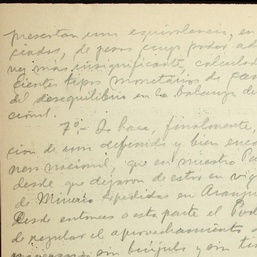 presentan una equivalencia, en
ciados, de pesos cuyo poder ad
vez más insignificante, calculad
tipos monetarios de cam
del desequilibrio en la balanza de
cional.
7º.- Se hace, finalmente,
ción de una definida y bien enca
nera nacional, que en nuestro Pa
desde que dejaron de estar en vig
de Minería expedidas en Aranjue
Desde entonces a esta parte el Pod
de regular el aprovechamiento d
sin brújula y sin tim